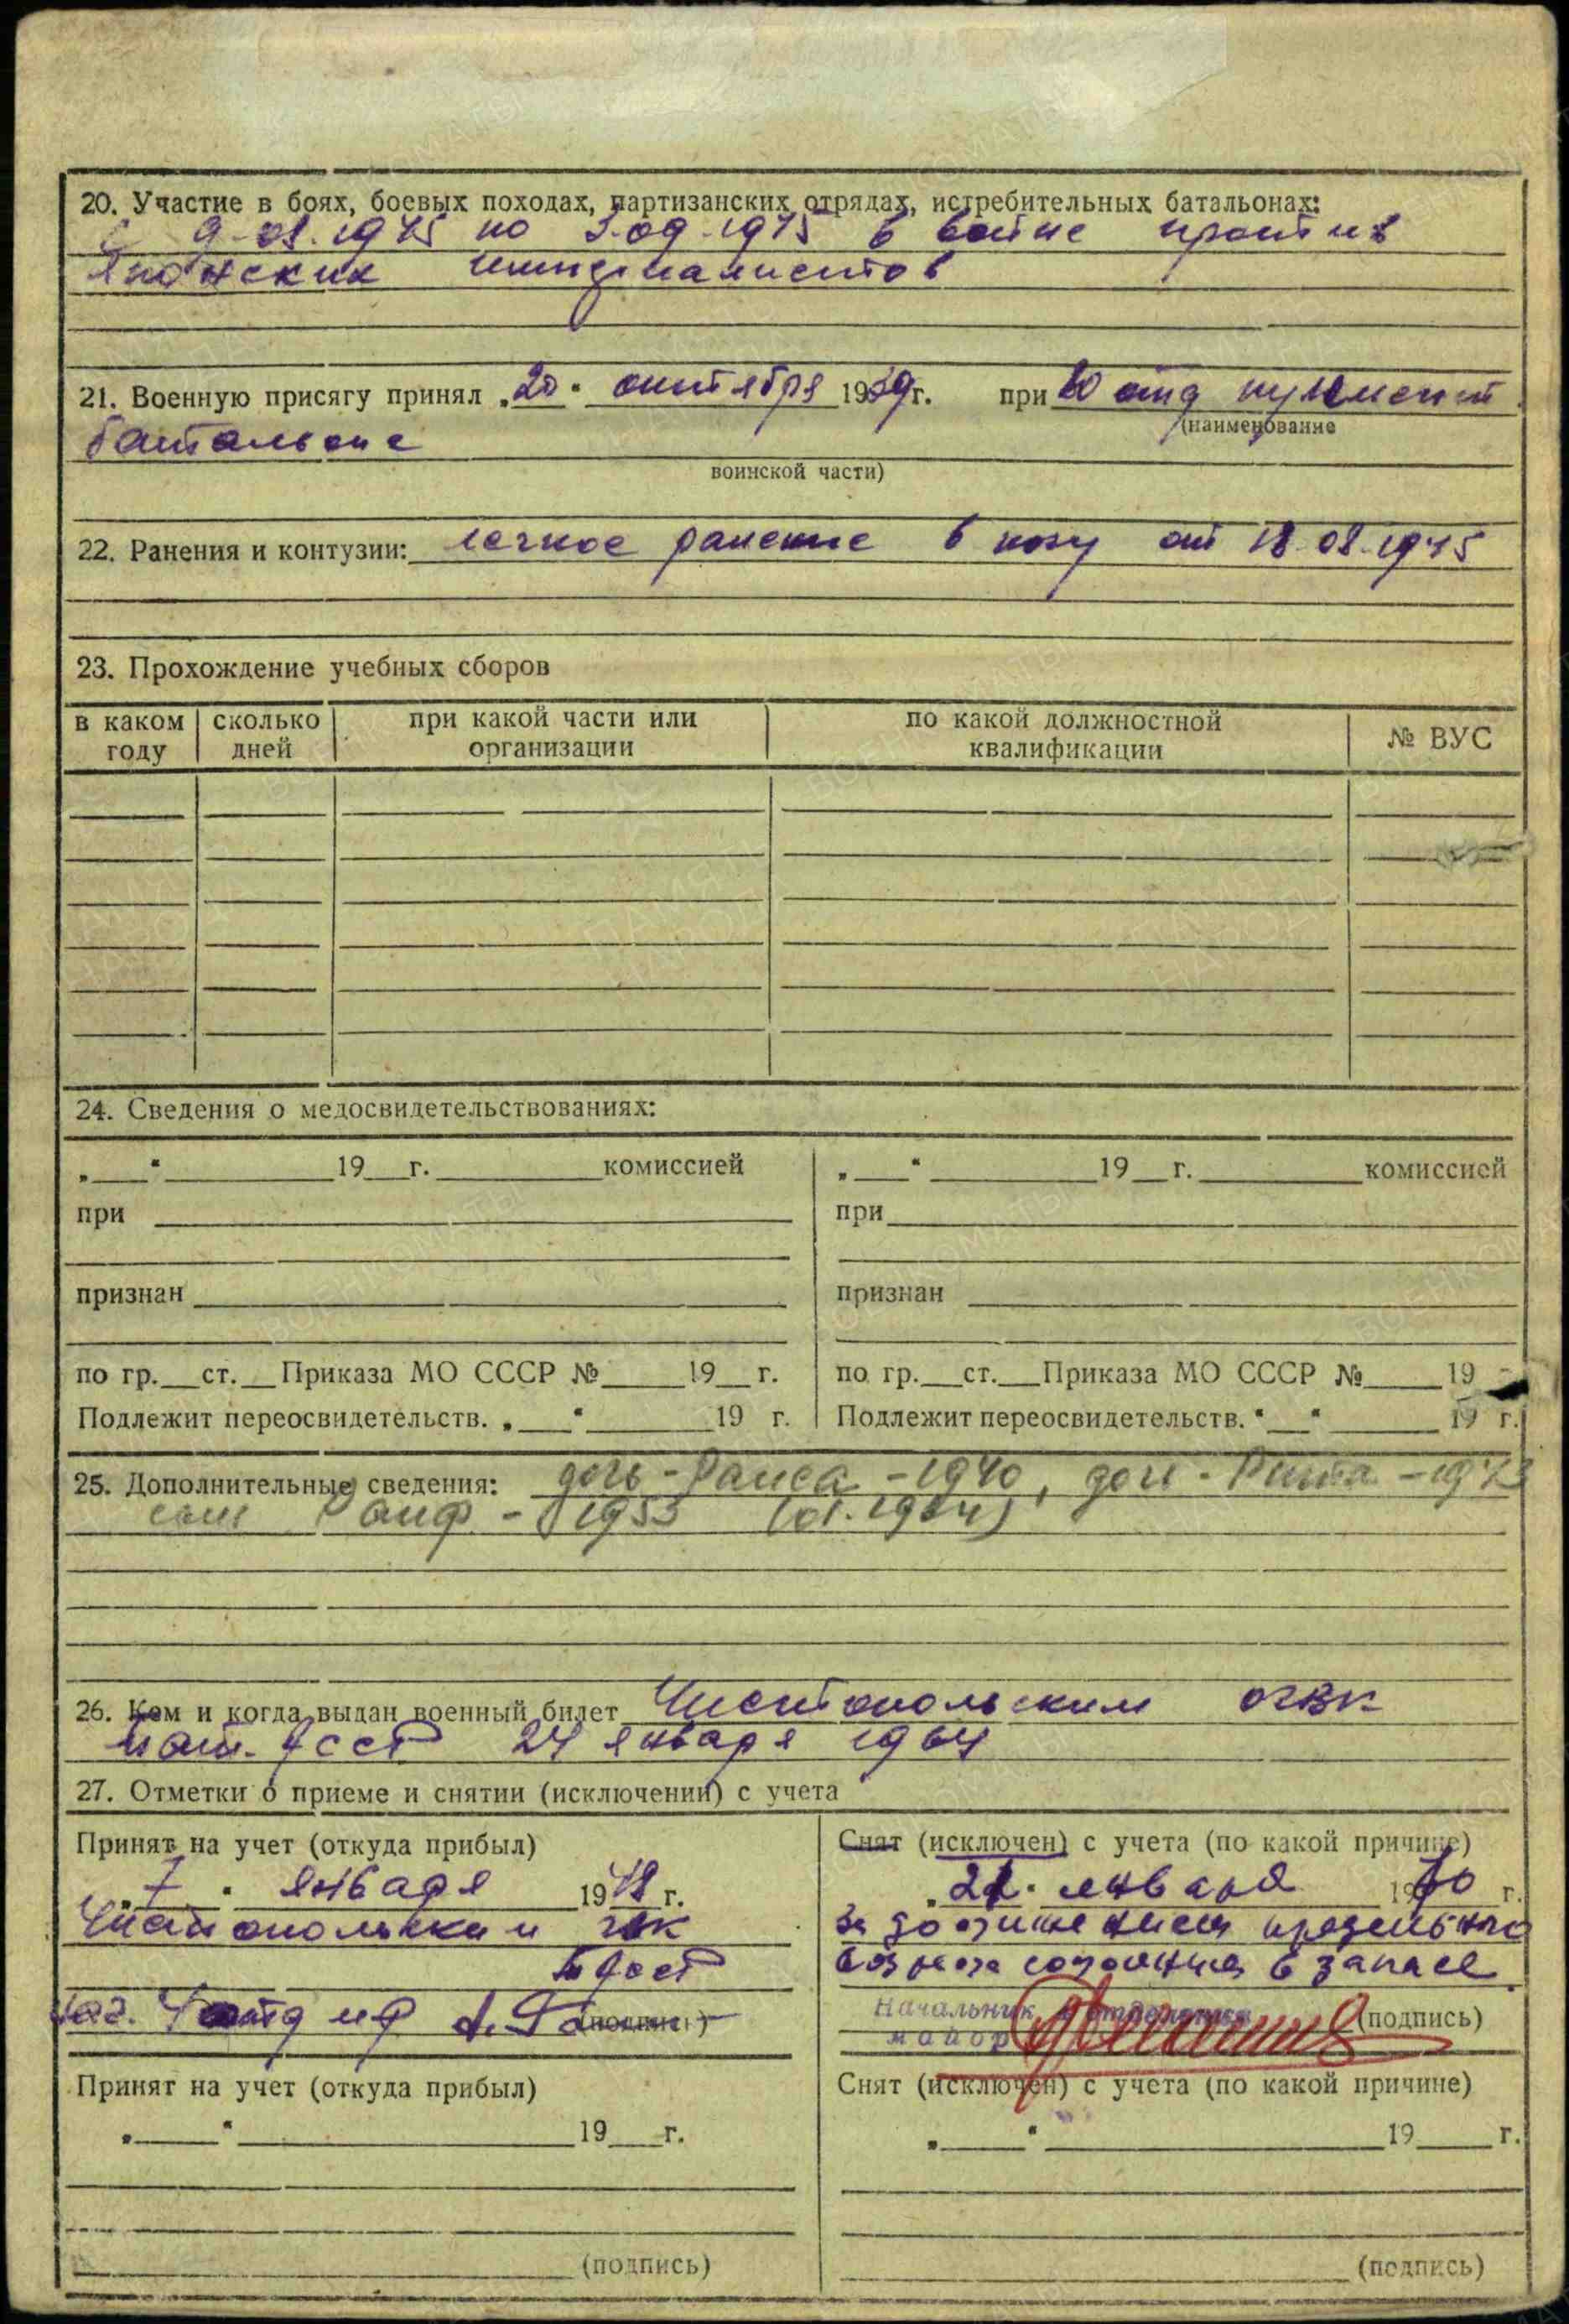 20. Участие в боях, боевых походах, партизанских отрядах, истребительных батальонах:
с 9-08.1945 по 3.09.1945 в войне против
Японских империалистов
21. Военную присягу принял „20“ октября 1939г. при 60 отд пулемент.
(наименование
батальоне
воинской части)
22. Ранения и контузии: легкое ранение в ногу от 18.08.1945
23. Прохождение учебных сборов
в каком году | сколько дней | при какой части или организации | по какой должностной квалификации | № ВУС
24. Сведения о медосвидетельствованиях:
„___“ ________ 19__г. ________ комиссией
при
признан
по гр.__ст.__Приказа МО СССР №____19__г.
Подлежит переосвидетельств. „___“ ______19 г.
„___“ ________ 19__г. ________ комиссией
при
признан
по гр.__ст.__Приказа МО СССР №____19
Подлежит переосвидетельств. “__“ ______ 19 г.
25. Дополнительные сведения: дочь - Раиса - 1940, дочь - Рита - 1943
сын Раиф - 1953 (01.1964)
26. Кем и когда выдан военный билет Чистопольским ОГВК
Тат. АССР 24 января 1964
27. Отметки о приеме и снятии (исключении) с учета
Принят на учет (откуда прибыл)
„7“ января 1948 г.
Чистопольским
ТАССР
Нач. 4
(подпись)
Снят (исключен) с учета (по какой причине)
„21“ января 1970 г.
За достижением предельного
возраста состояния в запасе.
Начальник 4 отделения
майор
(подпись)
Принят на учет (откуда прибыл)
„____“ ____________ 19___г.
(подпись)
Снят (исключен) с учета (по какой причине)
„____“ ____________ 19____г.
(подпись)